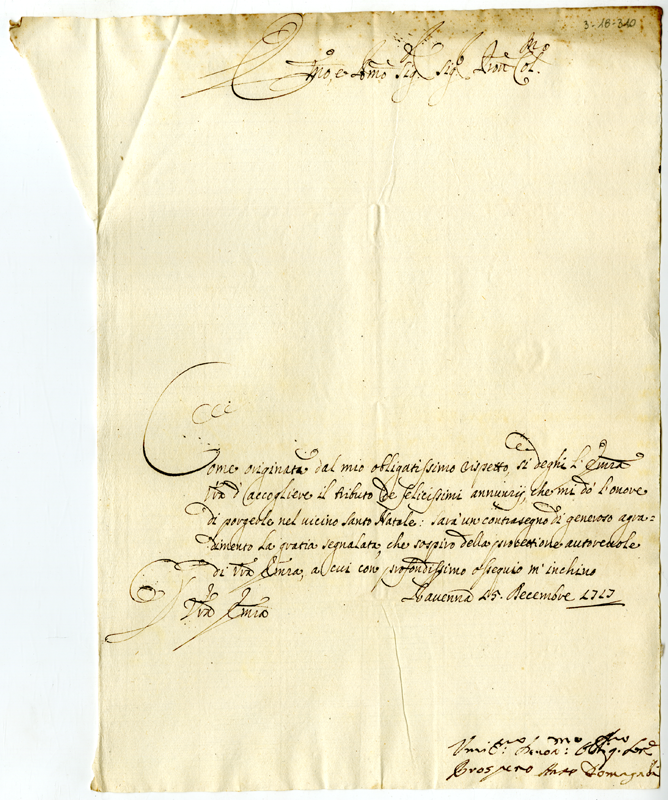 3-18-310
Emo, e Rmo Sigr Sigr Pron Colmo
Come originata dal mio obligatissimo rispetto, si deghi L'Emza
Vra d'accogliere il tributo de felicissimi annunzij, che mi dò l'onore
di porgerle nel vicino Santo Natale: Sarà un contrasegno di generoso agra-
dimento la gratia segnalata, che sospiro della protettione autorevole
di Vra Emza, a cui con profondissimo ossequio m'inchino
Ravenna 15. Decembre 1717
Vra Emza
Umilmo Devmo Obligmo Serre
Prospero Anto